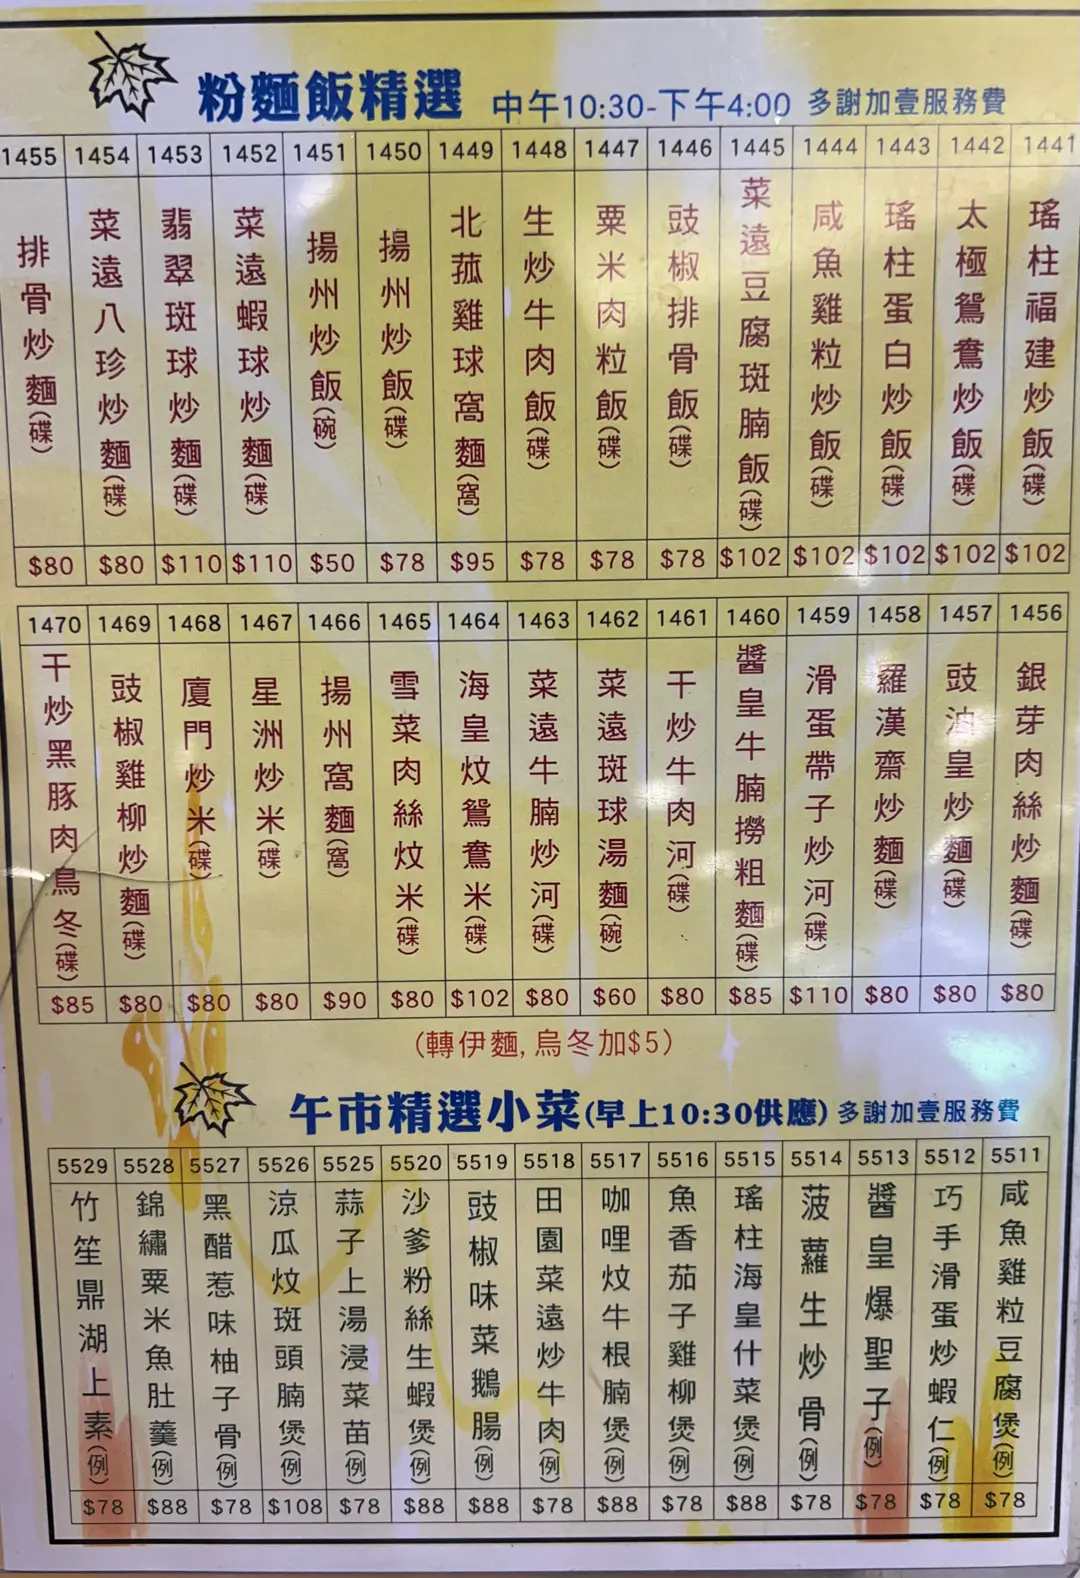 粉麵飯精選 中午10:30-下午4:00 多謝加壹服務費
1441 瑤柱福建炒飯(碟) $102
1442 太極鴛鴦炒飯(碟) $102
1443 瑤柱蛋白炒飯(碟) $102
1444 咸魚雞粒炒飯(碟) $102
1445 菜遠豆腐斑腩飯(碟) $102
1446 豉椒排骨飯(碟) $78
1447 粟米肉粒飯(碟) $78
1448 生炒牛肉飯(碟) $78
1449 北菰雞球窩麵(窩) $95
1450 揚州炒飯(碟) $78
1451 揚州炒飯(碗) $50
1452 菜遠蝦球炒麵(碟) $110
1453 翡翠斑球炒麵(碟) $110
1454 菜遠八珍炒麵(碟) $80
1455 排骨炒麵(碟) $80
1456 銀芽肉絲炒麵(碟) $80
1457 豉油皇炒麵(碟) $80
1458 羅漢齋炒麵(碟) $80
1459 滑蛋帶子炒河(碟) $110
1460 醬皇牛腩撈粗麵(碟) $85
1461 干炒牛肉河(碟) $80
1462 菜遠斑球湯麵(碗) $60
1463 菜遠牛腩炒河(碟) $80
1464 海皇炆鴛鴦米(碟) $102
1465 雪菜肉絲炆米(碟) $80
1466 揚州窩麵(窩) $90
1467 星洲炒米(碟) $80
1468 廈門炒米(碟) $80
1469 豉椒雞柳炒麵(碟) $80
1470 干炒黑豚肉烏冬(碟) $85
(轉伊麵,烏冬加$5)
午市精選小菜(早上10:30供應) 多謝加壹服務費
5511 咸魚雞粒豆腐煲(例) $78
5512 巧手滑蛋炒蝦仁(例) $78
5513 醬皇爆聖子(例) $78
5514 菠蘿生炒骨(例) $78
5515 瑤柱海皇什菜煲(例) $88
5516 魚香茄子雞柳煲(例) $78
5517 咖哩炆牛根腩煲(例) $88
5518 田園菜遠炒牛肉(例) $78
5519 豉椒味菜鵝腸(例) $88
5520 沙爹粉絲生蝦煲(例) $88
5525 蒜子上湯浸菜苗(例) $78
5526 涼瓜炆斑頭腩煲(例) $108
5527 黑醋惹味柚子骨(例) $78
5528 錦繡粟米魚肚羹(例) $88
5529 竹笙鼎湖上素(例) $78